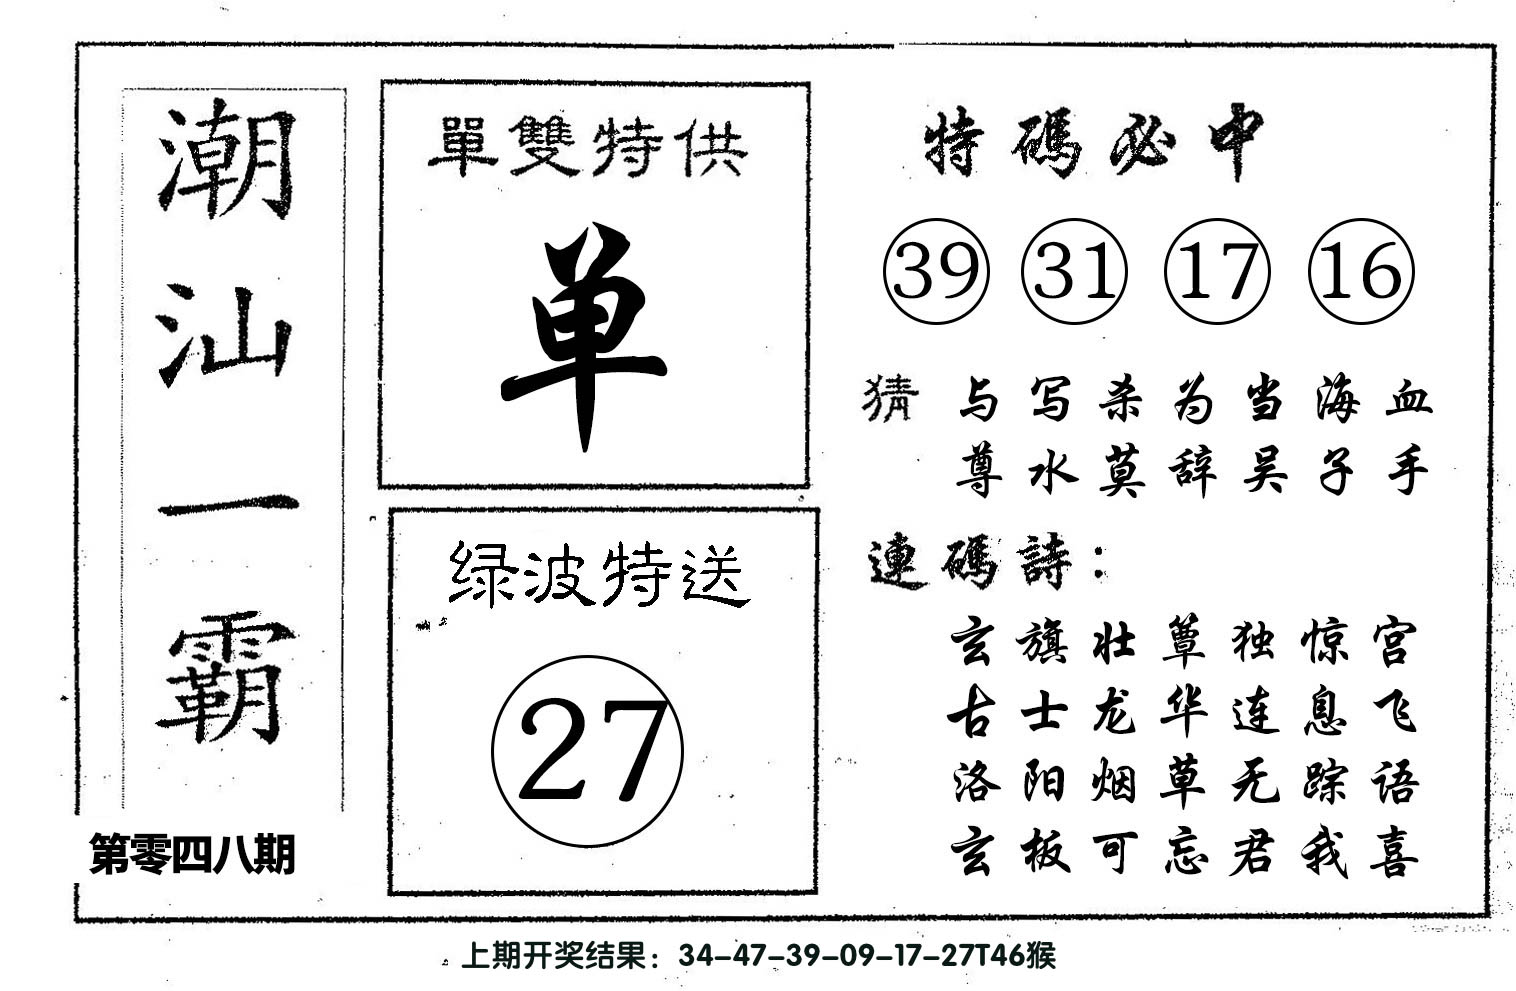 潮汕一霸
第零四八期
單雙特供
单
绿波特送
27
特碼必中
39 31 17 16
猜 与写杀为当海血
尊水莫辞吴子手
連碼詩：
玄旗壮蕈独惊宫
古士龙华连息飞
洛阳烟草无踪语
玄板可忘君我喜
上期开奖结果：34-47-39-09-17-27T46猴